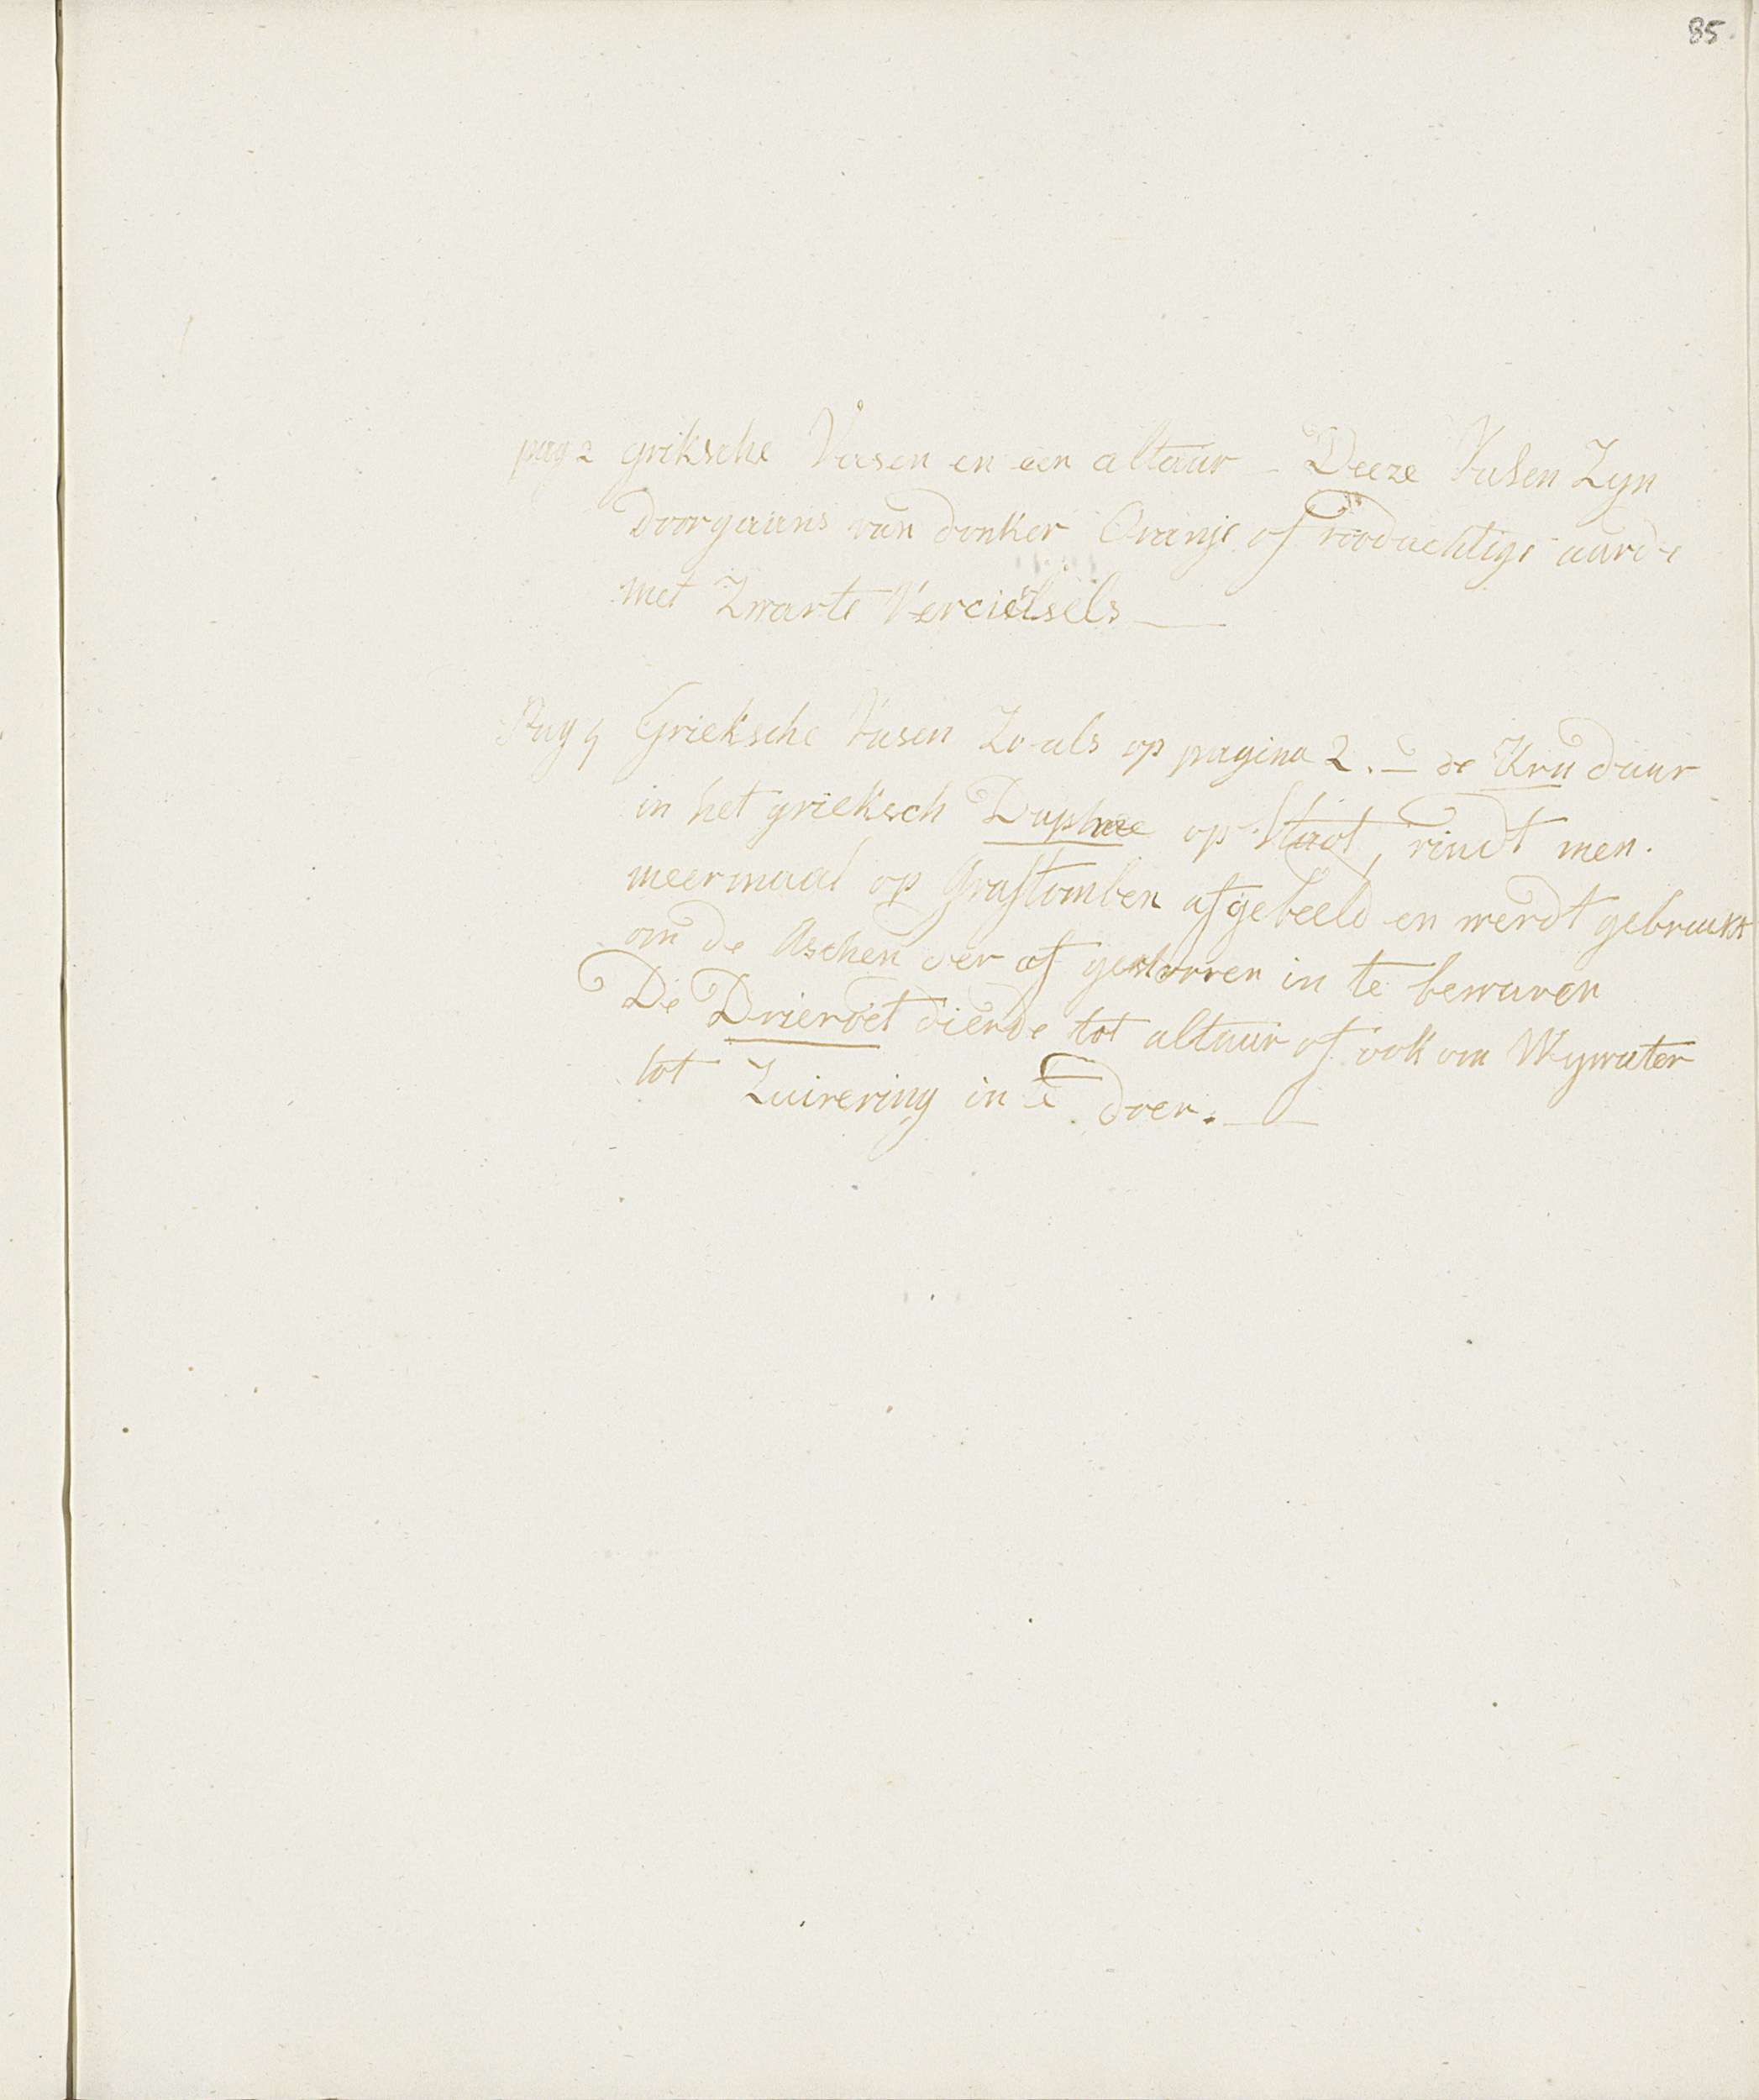 85.
pag 2 grieksche Vasen en een altaar – Deeze Vasen Zyn
Doorgaans van donker Oranje of roodachtige aarde
met Zwarte Vercielsels —
Pag 4 Grieksche Vasen Zo als op pagina 2. – de Kru daar
in het grieksch Daphne op staat, vindt men
meermaal op Graftomben afgebeeld en werdt gebruikt
om de Aschen der af gestorven in te bewaren
De Drievoet diende tot altaar of ook om Wywater
tot Zuivering in te doen. —